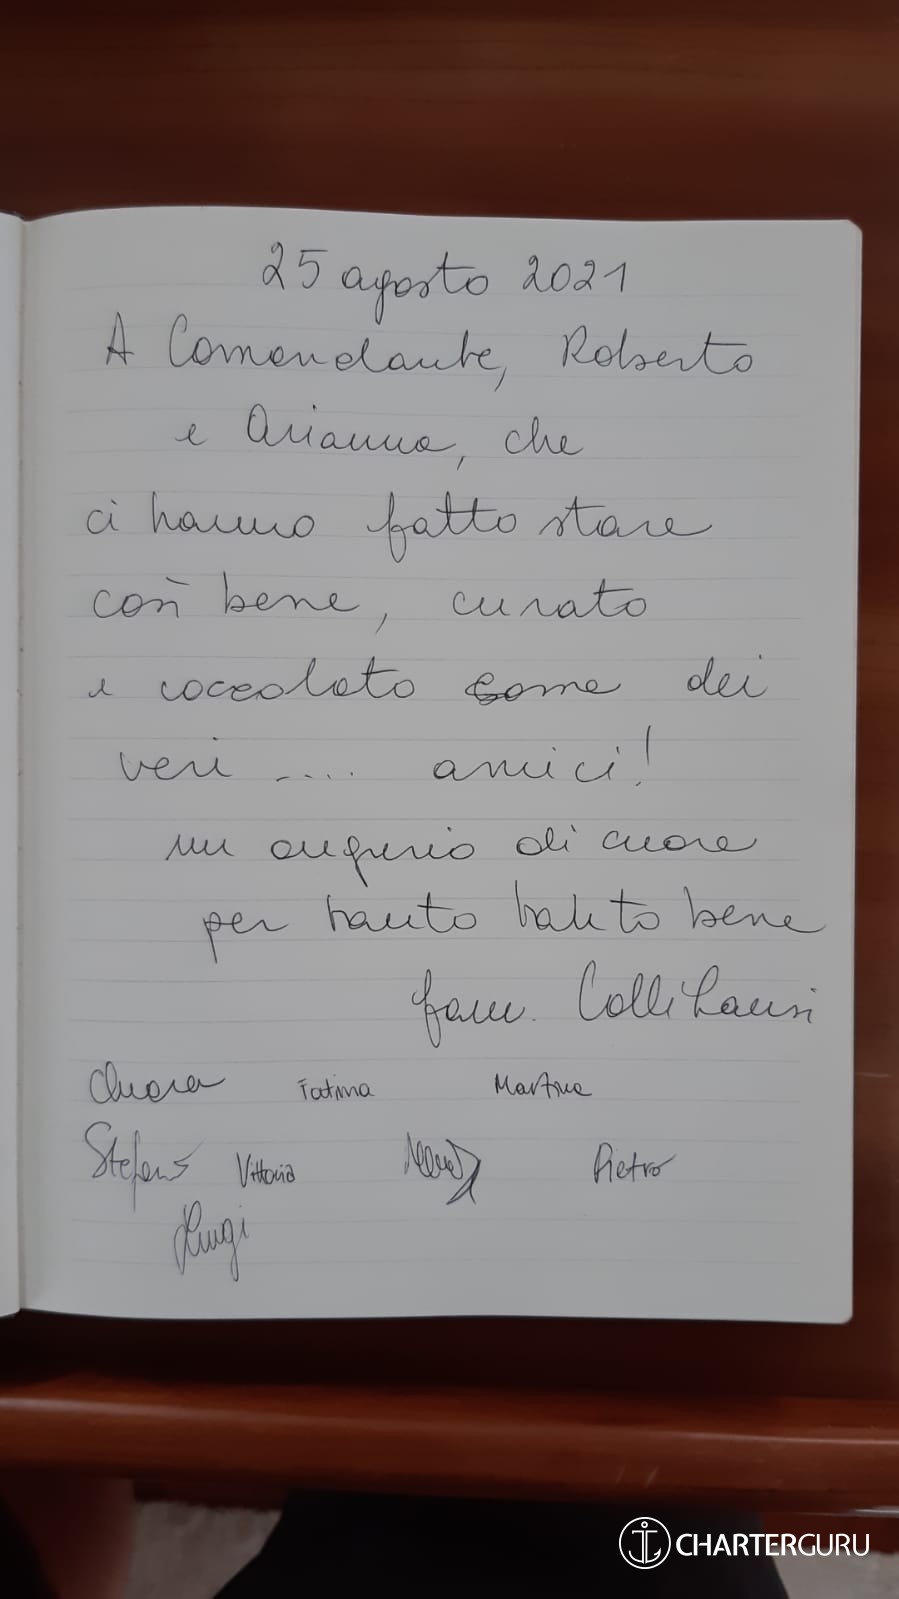 25 agosto 2021
A Comandante, Roberto
e Arianna, che
ci hanno fatto stare
così bene, curato
e coccolato come dei
veri .... amici!
un augurio di cuore
per tanto tanto bene
fam.
Chiara Fatima Martina
Stefano Vittoria Pietro
Luigi
CHARTERGURU